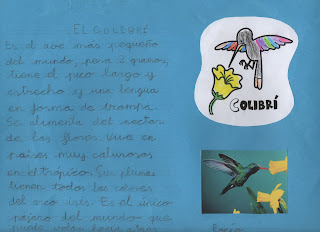 EL COLIBRÍ
Es el ave más pequeña
del mundo, pesa 2 gramos,
tiene el pico largo y
estrecho y una lengua
en forma de trompa.
Se alimenta del nectar
de las flores. Vive en
países muy calurosos
en el trópico. Sus plumas
tienen todos los colores
del arco iris. Es el único
pájaro del mundo que
puede volar hacia atrás
COLIBRÍ